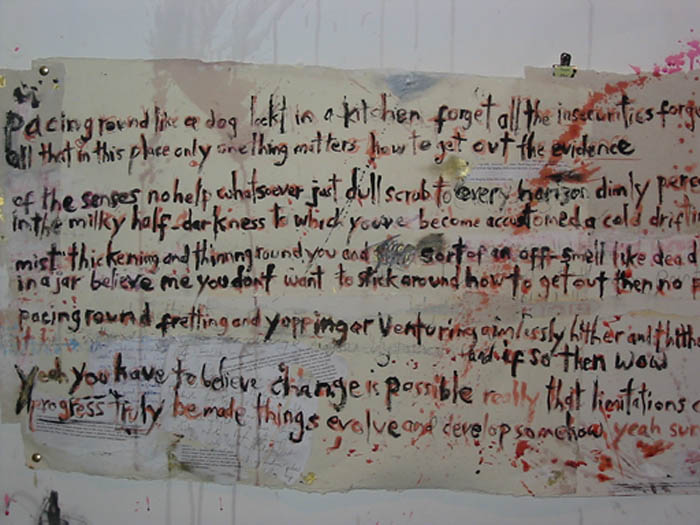 pacing round like a dog lockt in a kitchen forget all the insecurities forge
all that in this place only one thing matters how to get out the evidence
of the senses no help whatsoever just dull scrub to every horizon dimly perce
in the milky half-darkness to which you've become accustomed a cold drifti
mist thickening and thinning round you and sort of an off-smell like dead
in a jar believe me you don't want to stick around how to get out then no p
pacing round fretting and yapping or venturing aimlessly hither and thithe
and if so then wow
yeah you have to believe change is possible really that limitations c
progress truly be made things evolve and develop somehow yeah sur